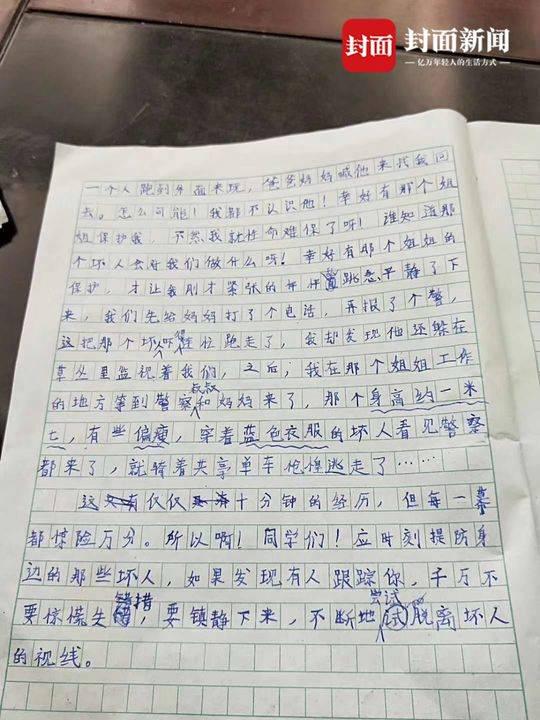 封面
封面新闻
—亿万年轻人的生活方式—
一个人跑到外面来玩，爸爸妈妈喊他来找我回
去。怎么可能！我都不认识他！幸好有那个姐
姐保护我，不然我就性命难保了呀！谁知道那
个坏人会对我们做什么呀！幸好有那个姐姐的
保护，才让我刚才紧张的怦怦直跳恶平静了下
来，我们先给妈妈打了个电话，再报了个警，
这把那个坏人吓得连忙跑走了，我却发现他还躲在
草丛里监视着我们，之后，我在那个姐姐工作
的地方等到警察叔叔和妈妈来了，那个身高约一米
七，有些偏瘦，穿着蓝色衣服的坏人看见警察
都来了，就骑着共享单车慌慌逃走了……
这仅仅十分钟的经历，但每一幕
都惊险万分。所以啊！同学们！应时刻提防身
边的那些坏人，如果发现有人跟踪你，千万不
要惊慌失错措，要镇静下来，不断地尝试脱离坏人
的视线。